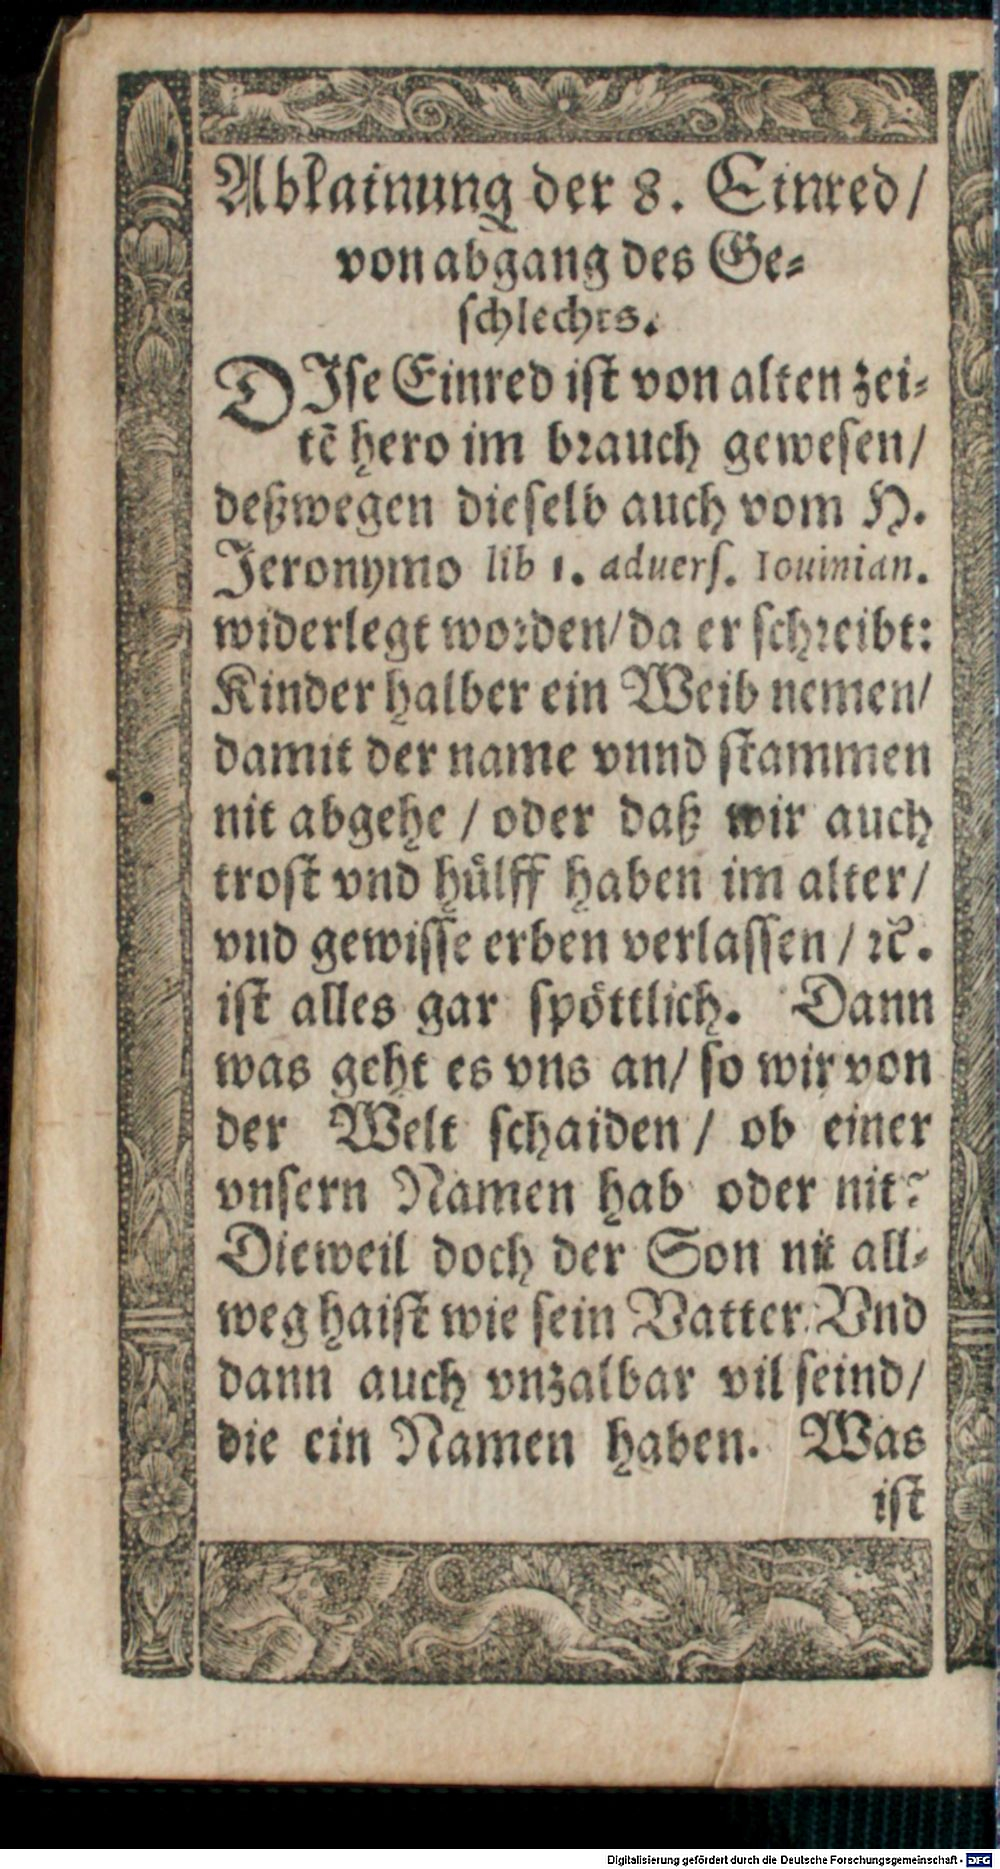 Ablainung der 8. Einred/
von abgang des Ge-
schlechts.
DIse Einred ist von alten zei-
tē hero im brauch gewesen/
deßwegen dieselb auch vom H.
Jeronymo lib 1. aduers. Iouinian.
widerlegt worden/ da er schreibt:
Kinder halber ein Weib nemen/
damit der name vnnd stammen
nit abgehe / oder daß wir auch
trost vnd hülff haben im alter/
vnd gewisse erben verlassen / ꝛc̃.
ist alles gar spöttlich. Dann
was geht es vns an/ so wir von
der Welt schaiden / ob einer
vnsern Namen hab oder nit?
Dieweil doch der Son nit all-
weg haist wie sein Vatter: Vnd
dann auch vnzalbar vil seind/
die ein Namen haben. Was
ist
Digitalisierung gefördert durch die Deutsche Forschungsgemeinschaft - DFG